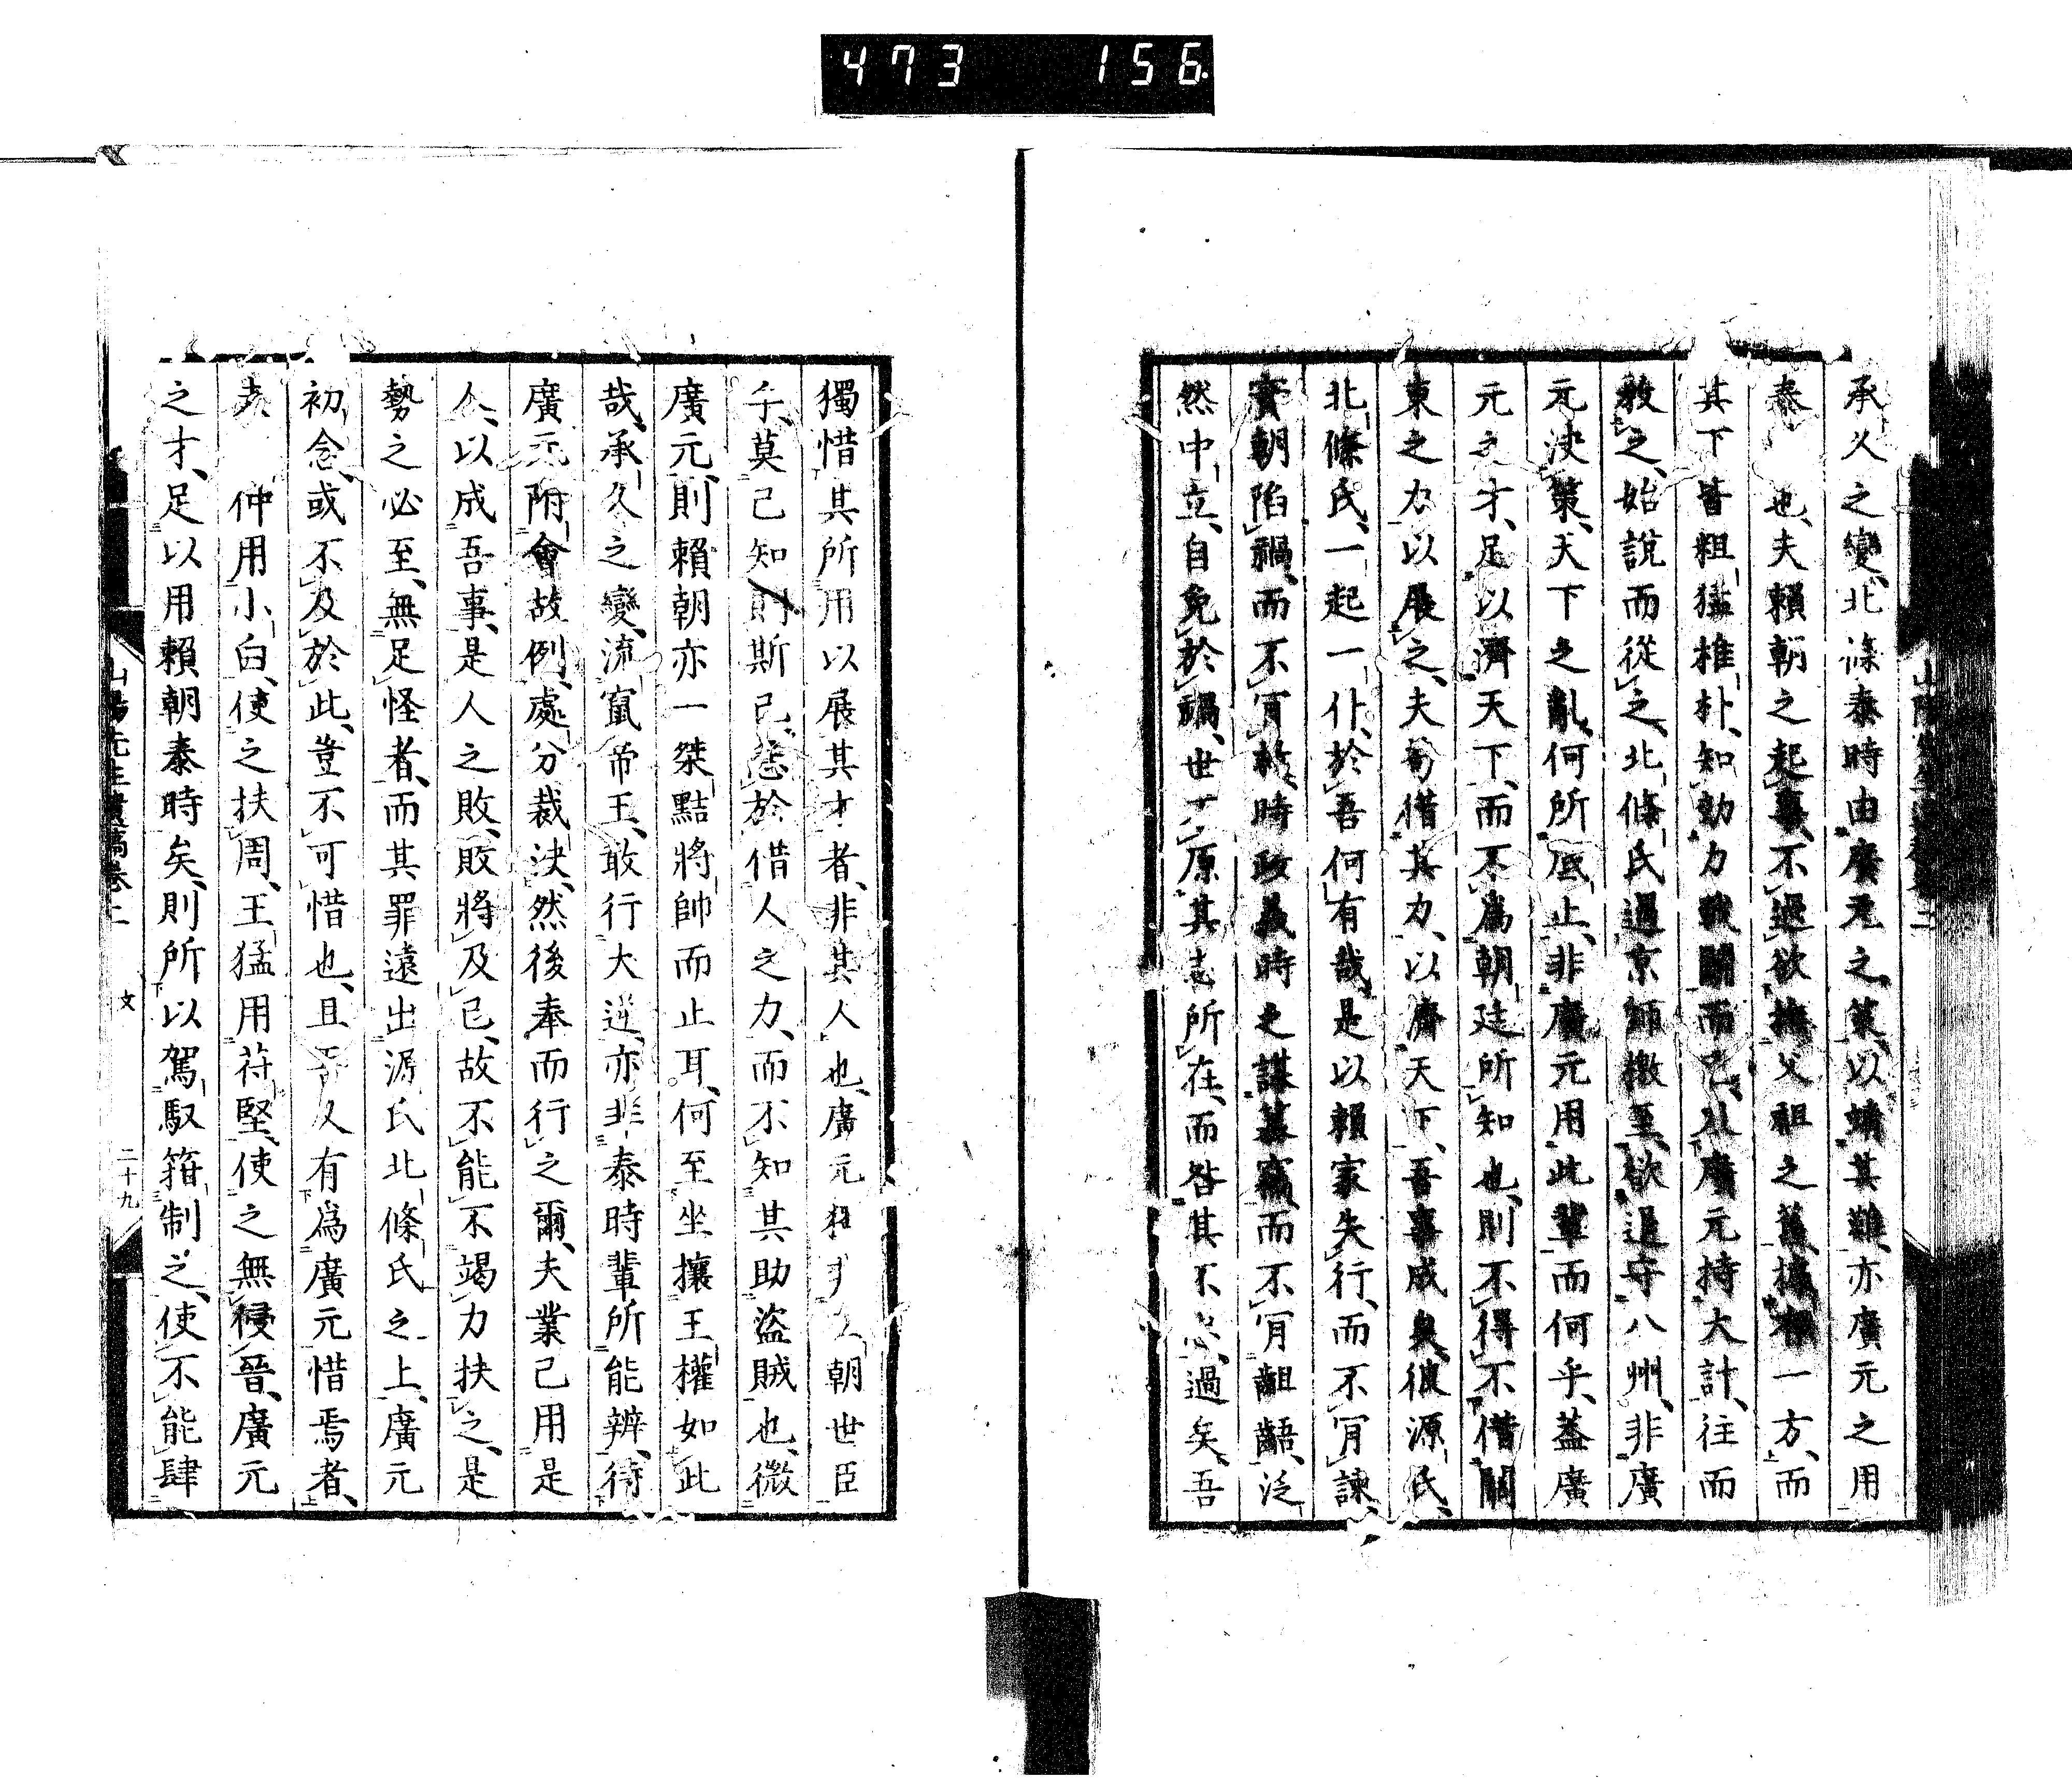 473 156
承久之變、北條泰時由廣元之策、以蠲其難、亦廣元之用
泰 也、夫賴朝之起事、不過欲撫父祖之舊、據 一方、而
其下皆粗猛椎朴、知効力戰鬭而已、 廣元持大計、往而
敎之、始說而從之、北條氏遇京師檄至、欲退守八州、非廣
元決策、天下之亂、何所底止、非廣元用此輩而何乎、蓋廣
元之才、足以濟天下、而不爲朝廷所知也、則不得不借關
東之力以展之、夫苟借其力、以濟天下、吾事成矣、彼源氏、
北條氏、一起一仆、於吾何有哉、是以賴家失行、而不肎諫、
實朝陷禍、而不肎救、時政義時之謀簒竊、而不肎齟齬、泛
然中立、自免於禍、世 原其志所在、而咎其不忠、過矣、吾
獨惜其所用以展其才者、非其人也、廣元 朝世臣
乎、莫己知則斯已、 於借人之力、而不知其助盜賊也、微
廣元、則賴朝亦一桀黠將帥而止耳、何至坐攘王權如此
哉、承久之變、流竄帝王、敢行大逆、亦非泰時輩所能辨、待
廣元附會故例、處分裁決、然後奉而行之爾、夫業已用是
人、以成吾事、是人之敗、敗將及己、故不能不竭力扶之、是
勢之必至、無足怪者、而其罪遠出源氏北條氏之上、廣元
初念、或不及於此、豈不可惜也、且 有爲廣元惜焉者、
夫 仲用小白、使之扶周、王猛用苻堅、使之無侵晉、廣元
之才、足以用賴朝泰時矣、則所以駕馭箝制之、使不能肆
山陽先生遺稿卷二 文 二十九